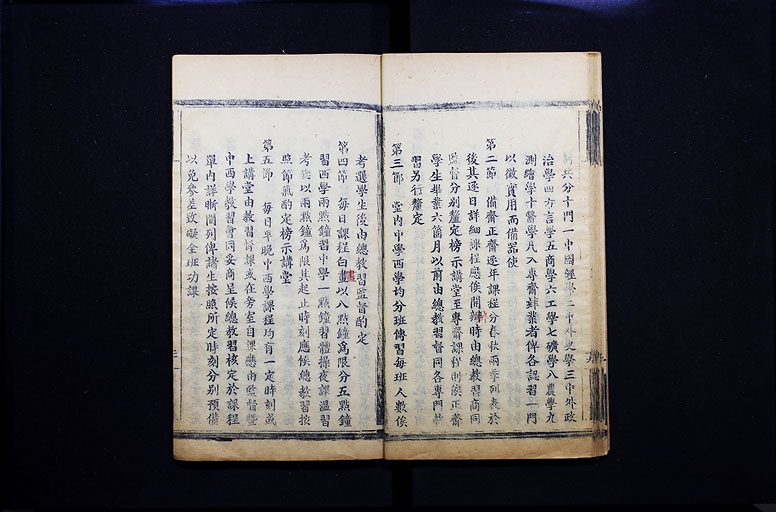 分十門一中國經學二中外史學三中外政
治學四方言學五商學六工學七礦學八農學九
測繪學十醫學凡入專齋肄業者俾各認習一門
以徵實用而備器使
第二節 備齋正齋逐年課程分春秋兩季列表於
後其逐日詳細課程應俟開辦時由總教習商同
監督分別釐定榜示講堂至專齋課程則俟正齋
學生畢業六箇月以前由總教習督同各專門教
第三節 堂內中學西學均分班傳習每班人數俟
考選學生後由總教習監督酌定
第四節 每日課程白晝以八點鐘為限分五點鐘
習西學兩點鐘習中學一點鐘習體操夜課溫習
考 以兩點鐘為限其起止時刻應候總教習按
照節氣酌定榜示講堂
第五節 每日早晚中西學課程均有一定時刻或
上講堂由教習督課或在旁室自課應由監督暨
中西學教習會同妥商呈候總教習核定於課程
單內詳晰開列俾諸生按照所定時刻分別預備
以免參差致礙全班功課
習另行釐定